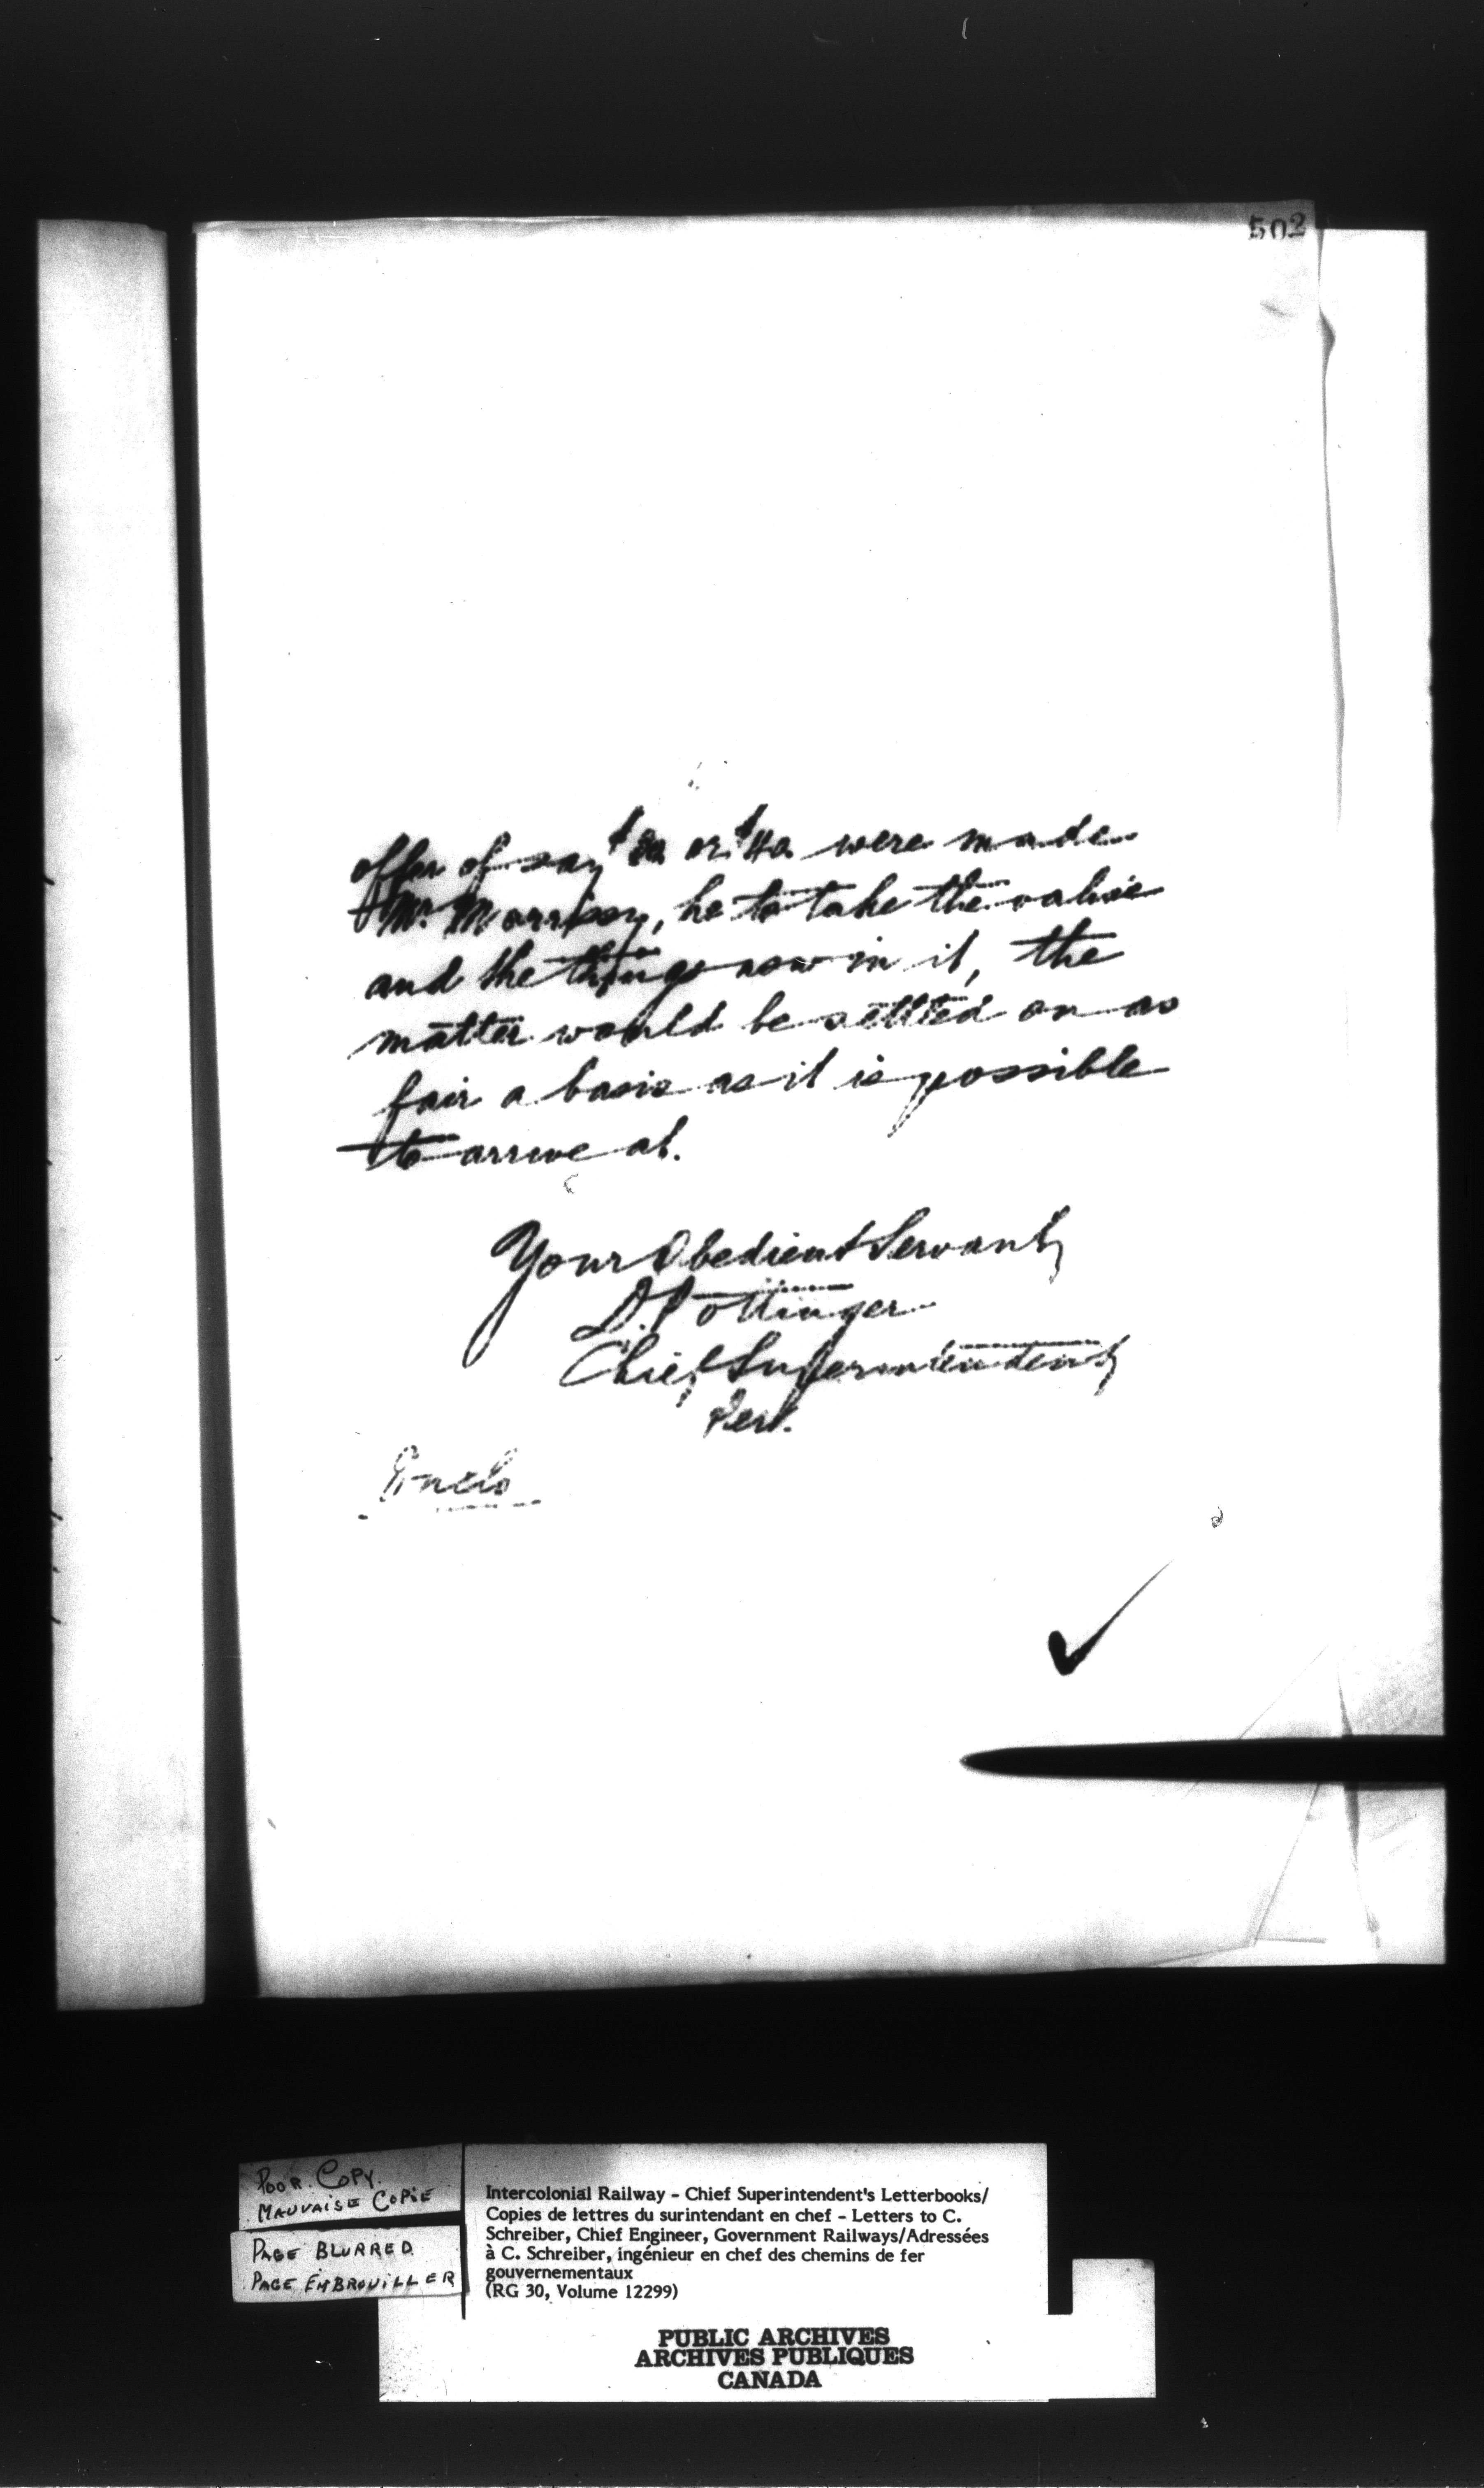 502
offer of say $30 or $40 were made
Mr. Morrissy, he to take the valise
and the things now in it, the
matter would be settled on as
fair a basis as it is possible
to arrive at.
Your Obedient Servant,
D. Pottinger
Chief Superintendent,
Enclo
POOR COPY.
MAUVAISE COPIE
PAGE BLURRED
PAGE EMBROUILLER
Intercolonial Railway - Chief Superintendent's Letterbooks/
Copies de lettres du surintendant en chef - Letters to C.
Schreiber, Chief Engineer, Government Railways/Adressées
à C. Schreiber, ingénieur en chef des chemins de fer
gouvernementaux
(RG 30, Volume 12299)
PUBLIC ARCHIVES
ARCHIVES PUBLIQUES
CANADA